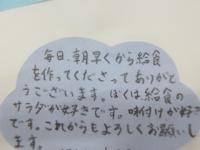 毎日、朝早くから給食
を作ってくださってありがと
うございます。ぼくは給食の
サラダが好きです。味付けが好き
です。これからもよろしくお願いし
ます。